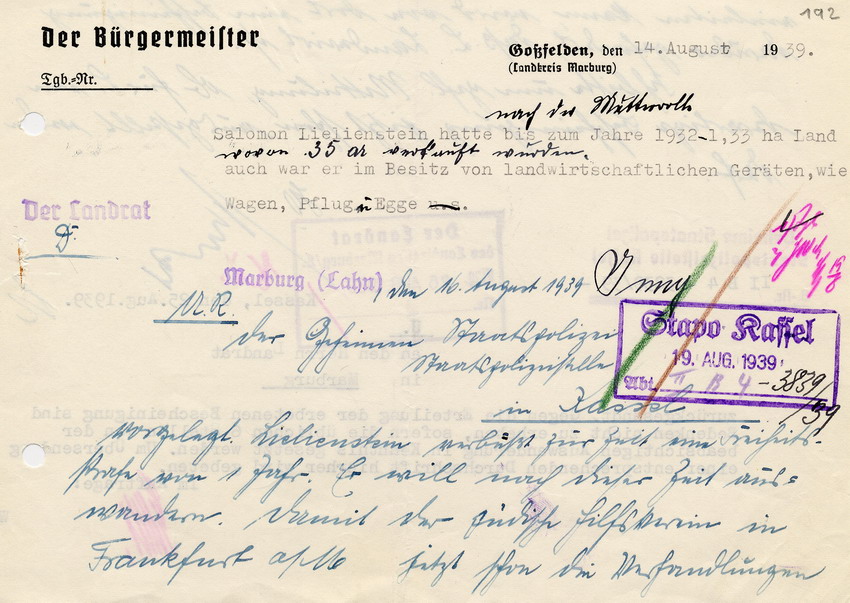 192
Der Bürgermeister
Tgb.-Nr.
Goßfelden, den 14. August 1939.
(Landkreis Marburg)
nach der Mutterrolle
Salomon Lielienstein hatte bis zum Jahre 1932-1,33 ha Land
wovon 35 ar verkauft wurden.
auch war er im Besitz von landwirtschaftlichen Geräten, wie
Wagen, Pflug u Egge u.s.
Der Landrat
Marburg (Lahn), den 16. August 1939
U.R.
der Geheimen Staatspolizei
Staatspolizeistelle
in Kassel
Stapo Kassel
19. AUG. 1939
Abt. II B 4 - 3839/39
vorgelegt. Lielienstein verbüßt zur Zeit eine Freiheits-
strafe von 1 Jahr. Er will nach dieser Zeit aus-
wandern. Damit der jüdische Hilfsverein in
Frankfurt a/M jetzt schon die Verhandlungen